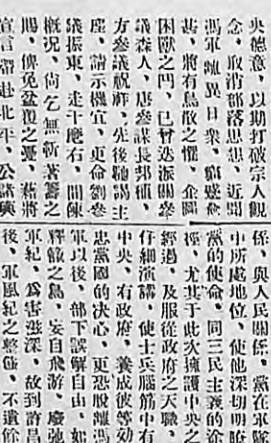 央德意、以期打破宗人觀
念、取消部落思想、近聞
馮軍離異日衆、
甚、將有鳥散之懼、企圖
困獸之鬥、已督迭派關參
議森人、唐參謀長邦植、
方參議祝、先後馳謁主
座、請示機宜、更命劉參
議振東、走干麾右、聞陳
概況、尙乞無新箸籌之
賜、俾免盆覆之憂、藉將
宣言帶赴北平、公諸輿
係、與人民關係、黨在軍
中所處地位、使他深切明瞭
黨的使命、同三民主義的途
徑、尤其于此次擁護中央之
經過、及服從政府之天職、
仔細演講、使士兵腦筋中有
中央、有政府、養成彼等効
忠黨國的决心、更恐脫離馮
軍以後、部下誤解自由、如
釋籠之鳥、妄自飛游、廢弛
軍紀、爲害滋深、故到許昌
後、軍風紀之整傋、不遺餘